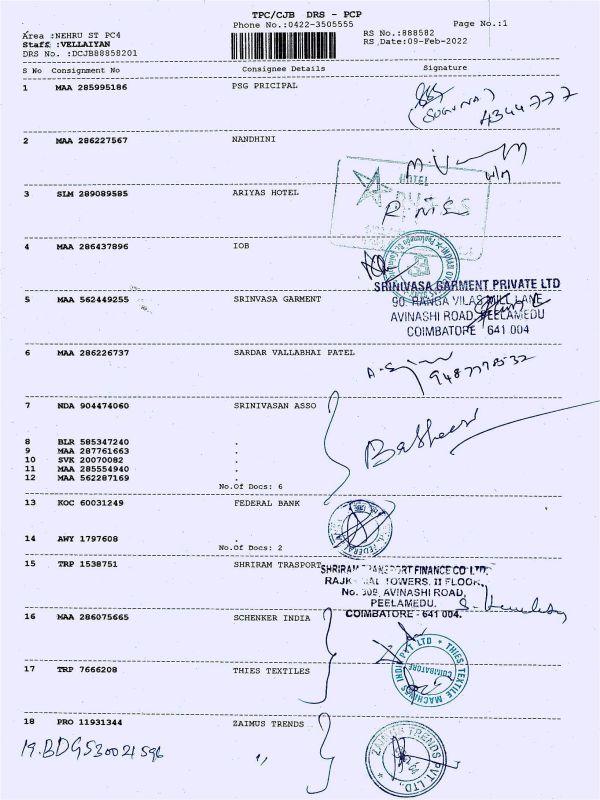 TPC/CJB DRS - PCP
Phone No.:0422-3505555 Page No.:1
Area :NEHRU ST PC4 RS No.:888582
Staff :VELLAIYAN RS Date:09-Feb-2022
DRS No. :DCJB88858201
S No Consignment No Consignee Details Signature
1 MAA 285995186 PSG PRICIPAL
(SUGUNA)
4344777
2 MAA 286227567 NANDHINI
HOTEL
3 SLM 289089585 ARIYAS HOTEL
4 MAA 286437896 IOB
SRINIVASA GARMENT PRIVATE LTD
5 MAA 562449255 SRINVASA GARMENT 90 RANGA VILAS MILL LANE
AVINASHI ROAD, PEELAMEDU
COIMBATORE 641 004
6 MAA 286226737 SARDAR VALLABHAI PATEL
9487778532
7 NDA 904474060 SRINIVASAN ASSO
Basheer
8 BLR 585347240 .
9 MAA 287761663 .
10 SVK 20070082 .
11 MAA 285554940 .
12 MAA 562287169 .
No.Of Docs: 6
13 KOC 60031249 FEDERAL BANK
14 AWY 1797608 .
No.Of Docs: 2
15 TRP 1538751 SHRIRAM TRASPORT
SHRIRAM TRANSPORT FINANCE CO LTD.
TOWERS, II FLOOR,
No. 309, AVINASHI ROAD,
PEELAMEDU,
COIMBATORE - 641 004.
16 MAA 286075665 SCHENKER INDIA
17 TRP 7666208 THIES TEXTILES
THIES TEXTILE MACHINES INDIA PVT LTD
COIMBATORE
18 PRO 11931344 ZAIMUS TRENDS
ZAIMUS TRENDS PVT. LTD.,
19. BDGS30021596 ,,